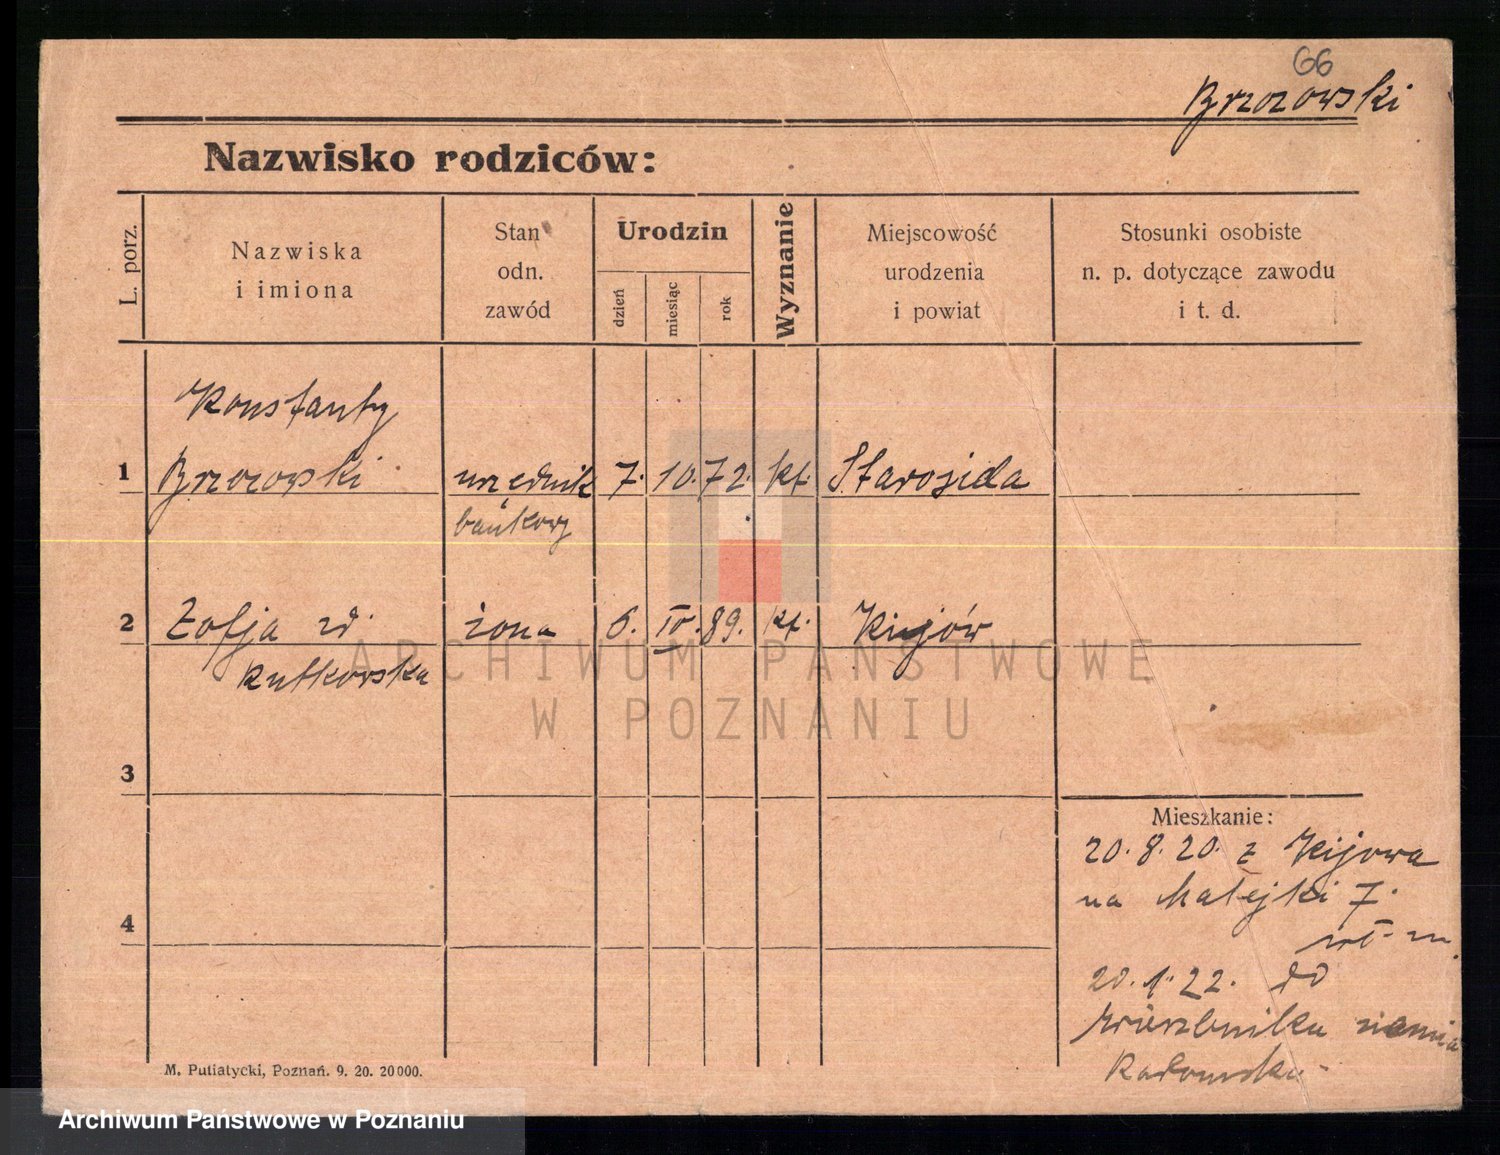 66
Brzozowski
Nazwisko rodziców:
L. porz.
Nazwiska
i imiona
Stan
odn.
zawód
Urodzin
dzień
miesiąc
rok
Wyznanie
Miejscowość
urodzenia
i powiat
Stosunki osobiste
n. p. dotyczące zawodu
i t. d.
Konstanty
1 Brzozowski urzędnik 7. 10. 72. kt. Starosida
bankowy
2 Zofja zd. żona 6. IV. 89. kt. Kijów
Rutkowska
3
4
Mieszkanie:
20. 8. 20. z Kijowa
na Matejki 7.
20. 1. 22. do
Wierzbnika ziemia
Radomska
M. Putiatycki, Poznań. 9. 20. 20000.
ARCHIWUM PAŃSTWOWE
W POZNANIU
Archiwum Państwowe w Poznaniu